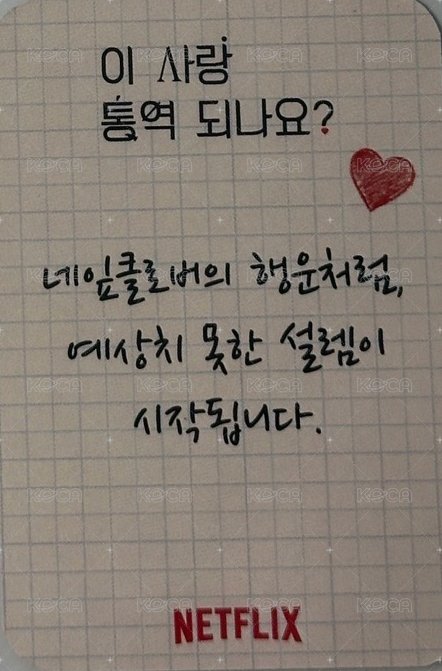 이 사랑
통역 되나요?
네잎클로버의 행운처럼,
예상치 못한 설렘이
시작됩니다.
NETFLIX